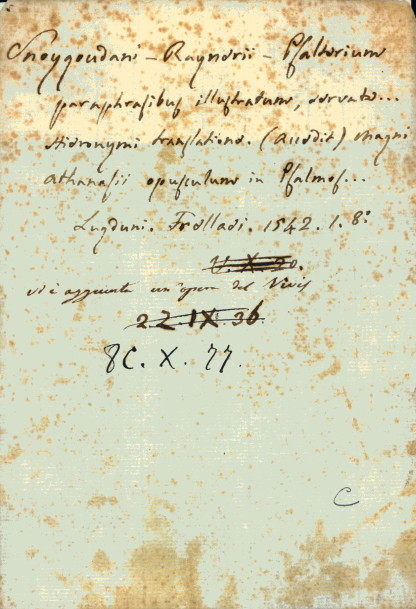 Snoygoudani - Raynerii - Psalterium
paraphrasibus illustratum, servata...
Hieronymi translatione. (Accedit) Magni
Athanasii opusculum in Psalmos...
Lugduni. Frellaei. 1542. 1. 8.º
V. X. 20.
si è aggiunta un'opera del Vives
22 IX 36
8C. X. 77.
C